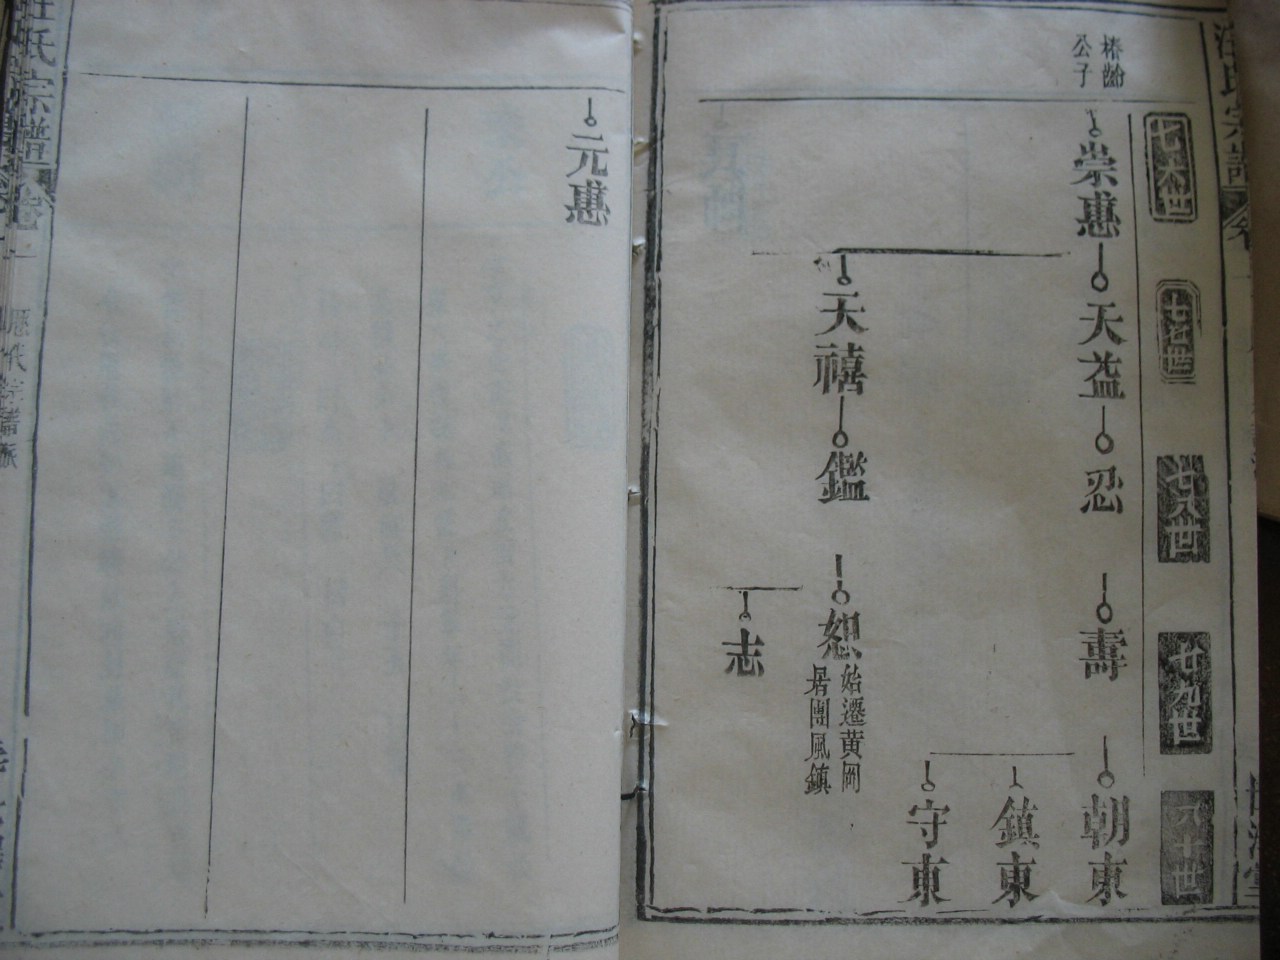 汪氏宗譜
椿齡
公子
七六世
七七世
七八世
七九世
八十世
崇惪
天益
忍
壽
朝東
鎮東
守東
天禧
鑑
恕
始遷黃岡
居團風鎮
志
元惪
汪氏宗譜
卷
一
歷代宗譜派